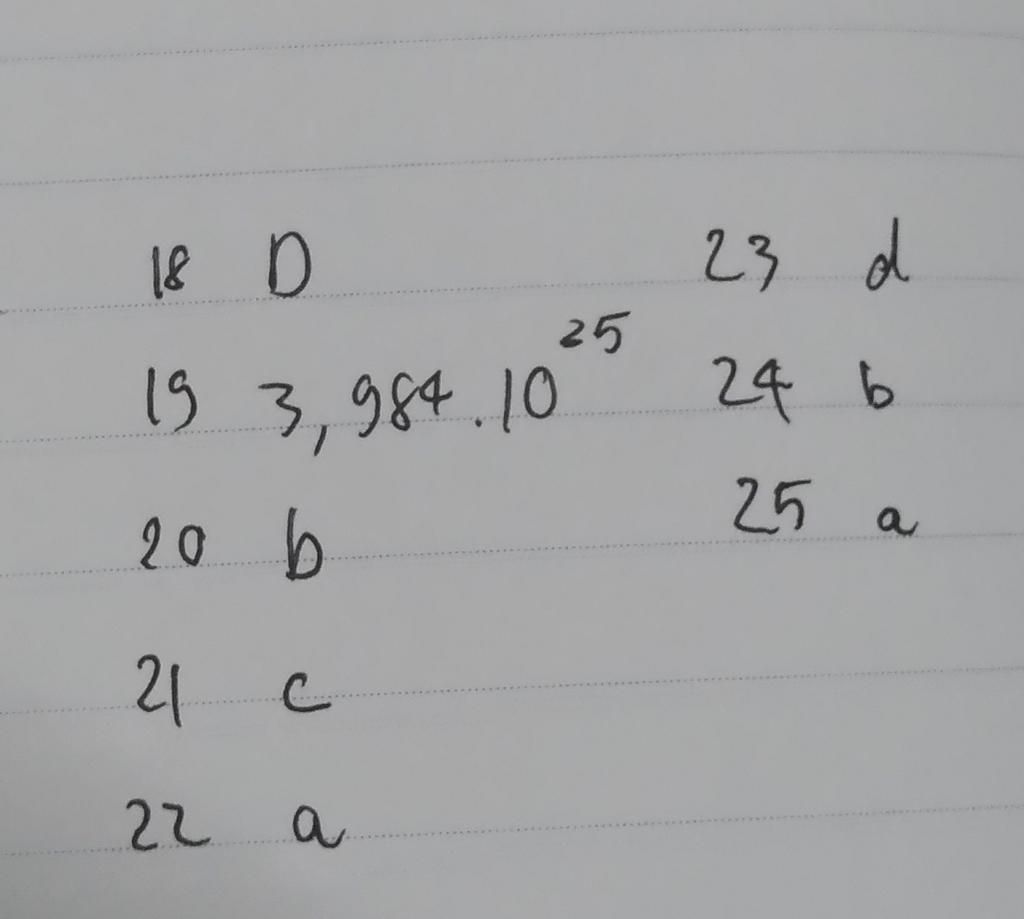 18 D
19 3,984.10²⁵
20 b
21 c
22 a
23 d
24 b
25 a